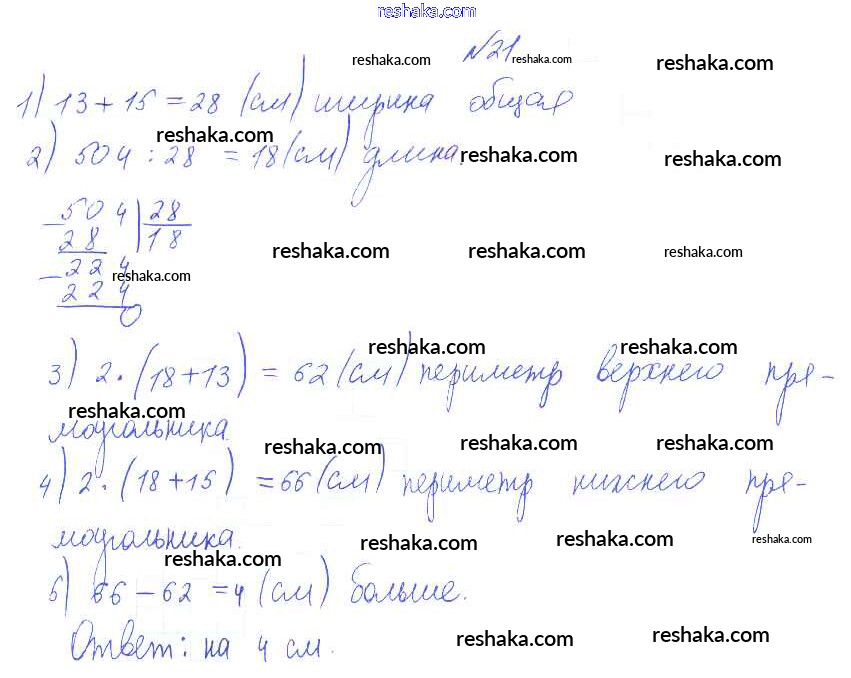 reshaka.com
№21
reshaka.com reshaka.com reshaka.com
1) 13 + 15 = 28 (см) ширина общая
reshaka.com
2) 504 : 28 = 18 (см) длина. reshaka.com reshaka.com
504 | 28
28 | 18
reshaka.com reshaka.com reshaka.com
224 reshaka.com
224
0
reshaka.com reshaka.com
3) 2 · (18 + 13) = 62 (см) периметр верхнего пря-
reshaka.com
моугольника.
reshaka.com reshaka.com reshaka.com
4) 2 · (18 + 15) = 66 (см) периметр нижнего пря-
моугольника. reshaka.com reshaka.com reshaka.com
reshaka.com
5) 66 - 62 = 4 (см) больше.
Ответ: на 4 см. reshaka.com reshaka.com